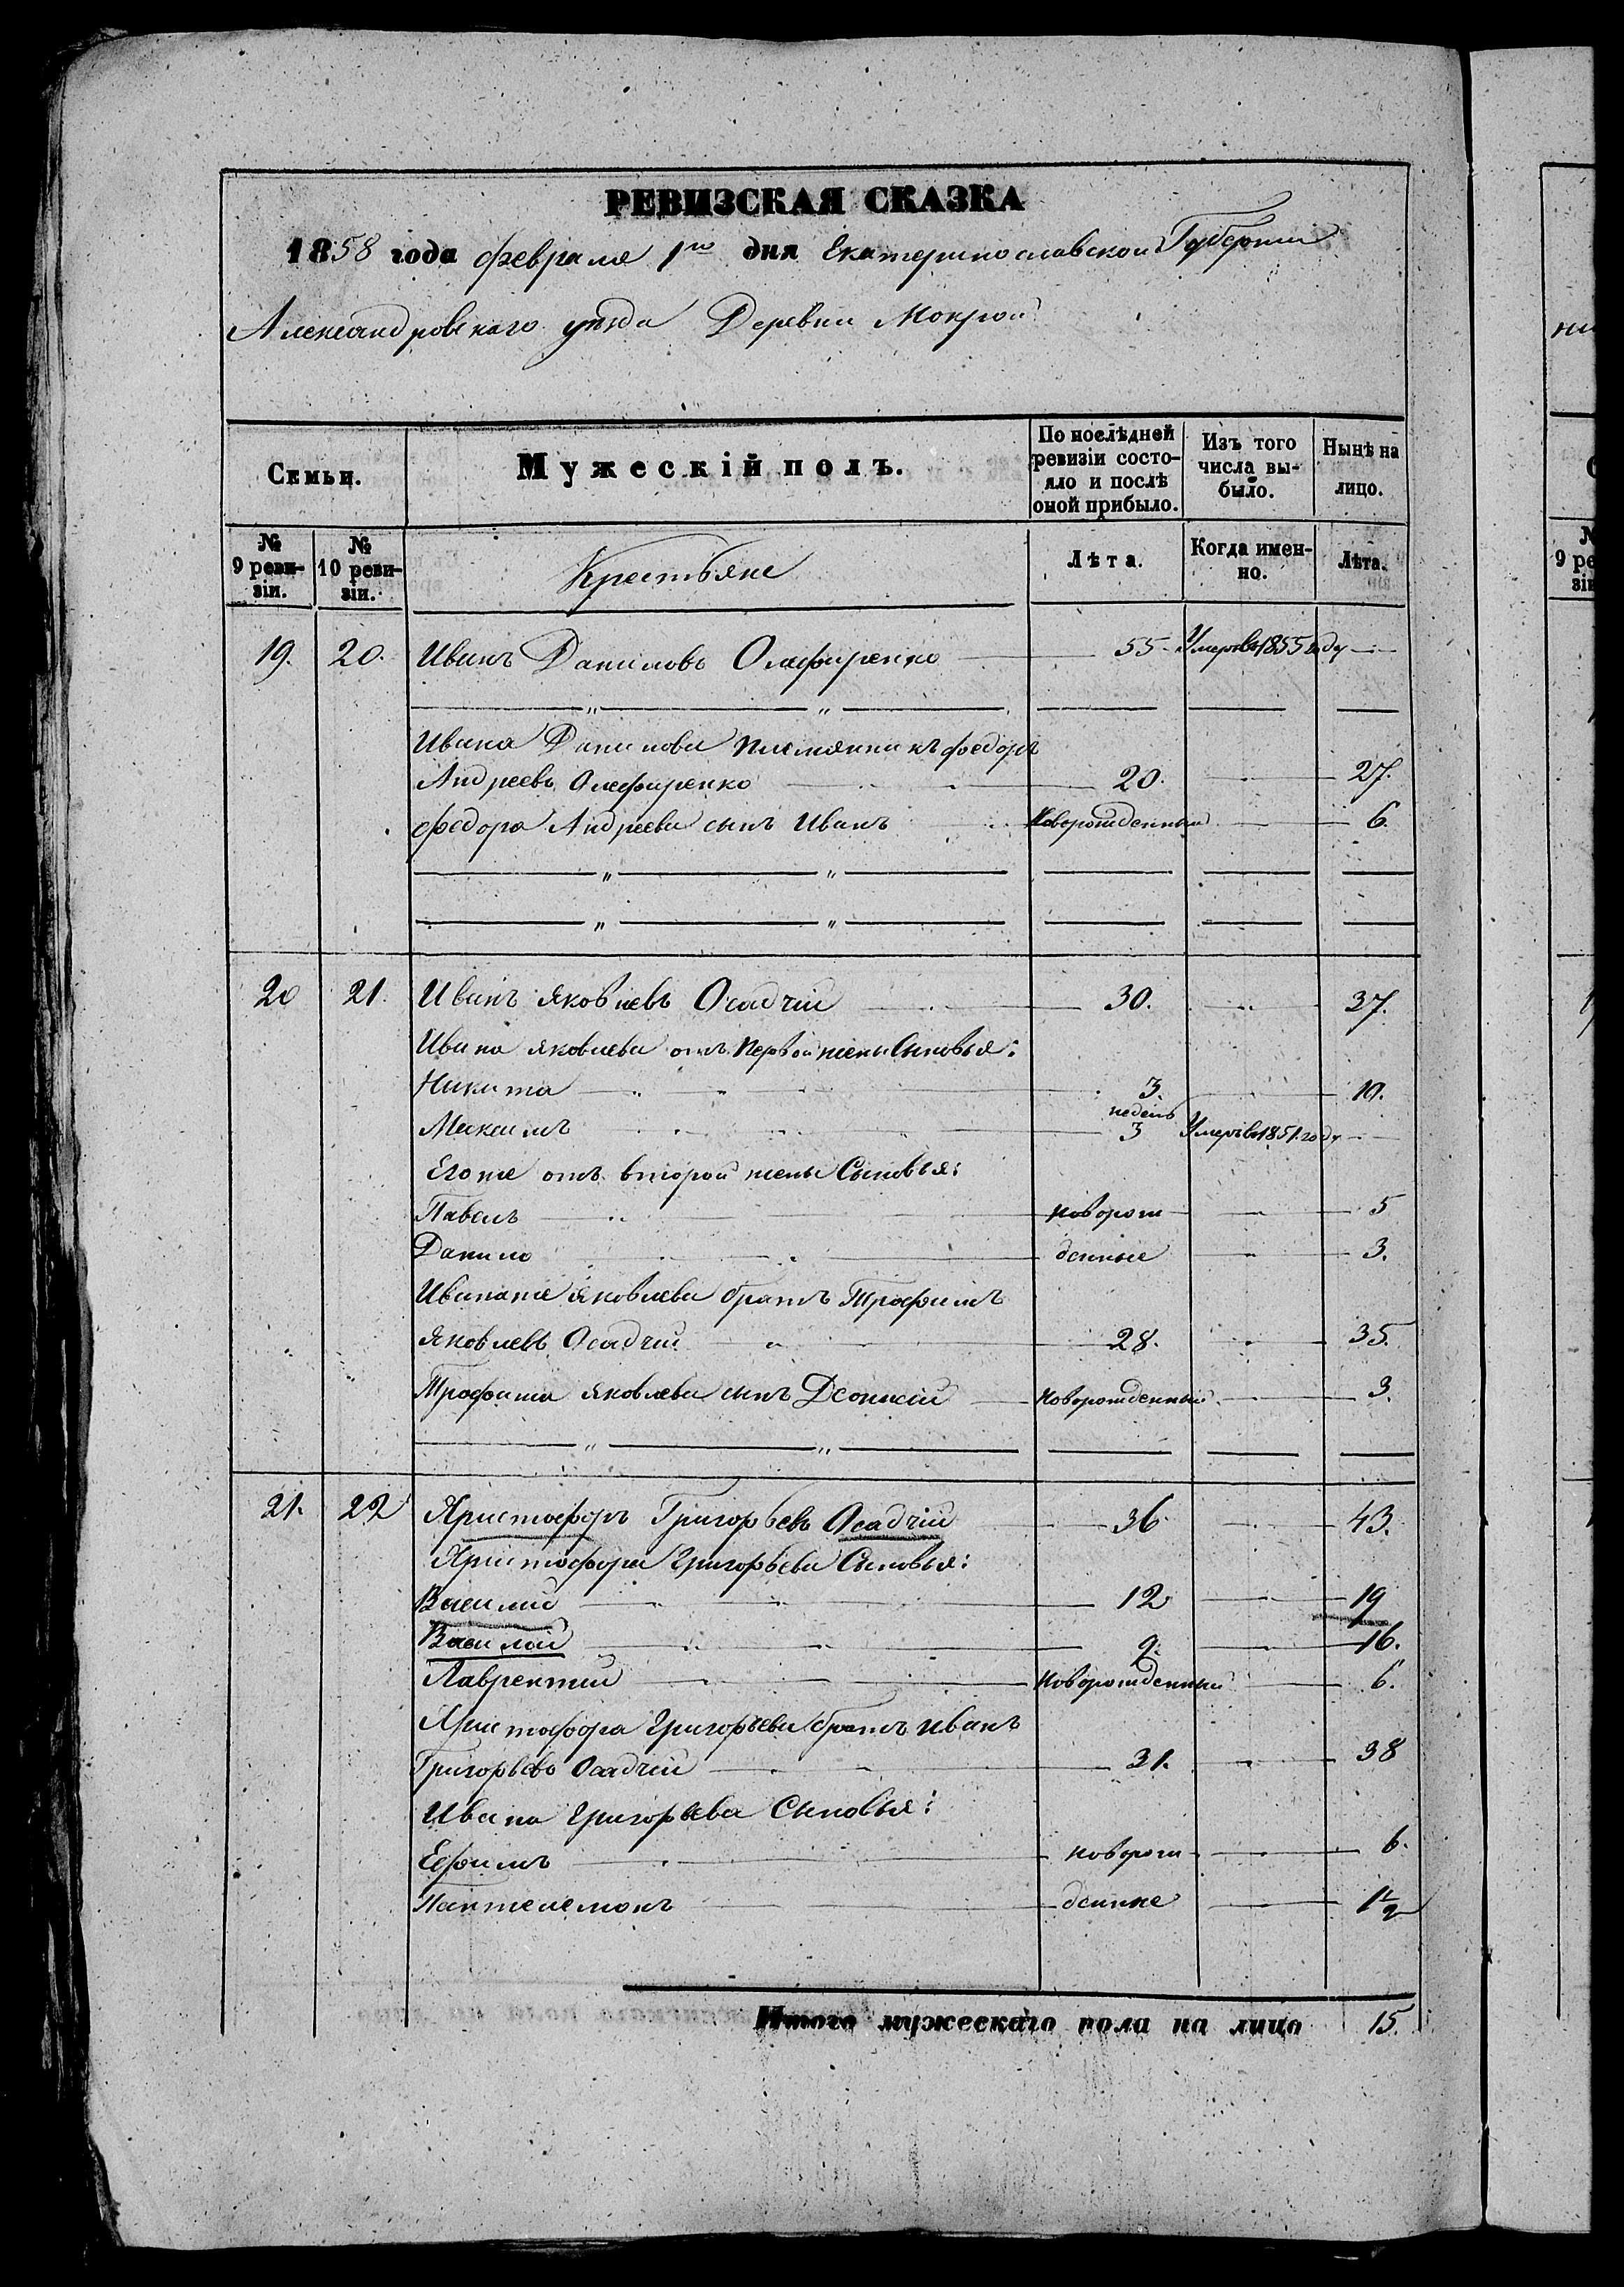 РЕВИЗСКАЯ СКАЗКА
1858 года февраля 1го дня Екатеринославской Губернии
Александровскаго уѣзда Деревни Мокрой
Семьи.
Мужескій полъ.
По послѣдней ревизіи состояло и послѣ оной прибыло.
Изъ того числа выбыло.
Нынѣ на лицо.
№ 9 ревизіи.
№ 10 ревизіи.
Крестьяне
Лѣта.
Когда именно.
Лѣта.
19. 20. Иванъ Даниловъ Олефиренко 55 Умеръ въ 1855 году
Ивана Данилова племянникъ федоръ
Андреевъ Олефиренко 20. 27.
федора Андреева сынъ Иванъ Новорожденный 6.
20 21. Иванъ Яковлевъ Осадчій 30. 37.
Ивана Яковлева отъ первой жены Сыновья:
Никита 3. 10.
Максимъ недель 3 Умеръ въ 1851 году
Его же отъ второй жены Сыновья:
Павелъ новорож 5
Данило денные 3.
Ивана же Яковлева братъ Трофимъ
Яковлевъ Осадчій 28. 35.
Трофима Яковлева сынъ Деонисій новорожденный 3.
21. 22 Христофоръ Григорьевъ Осадчій 36 43.
Христофора Григорьева Сыновья:
Василий 12 19
Василий 9. 16.
Лаврентий новорожденный 6.
Христофора Григорьева братъ Иванъ
Григорьевъ Осадчій 31. 38
Ивана Григорьева Сыновья:
Ефимъ новорож 6.
Пантелемонъ денные 1½
Итого мужескаго пола на лицо 15.
9 ре